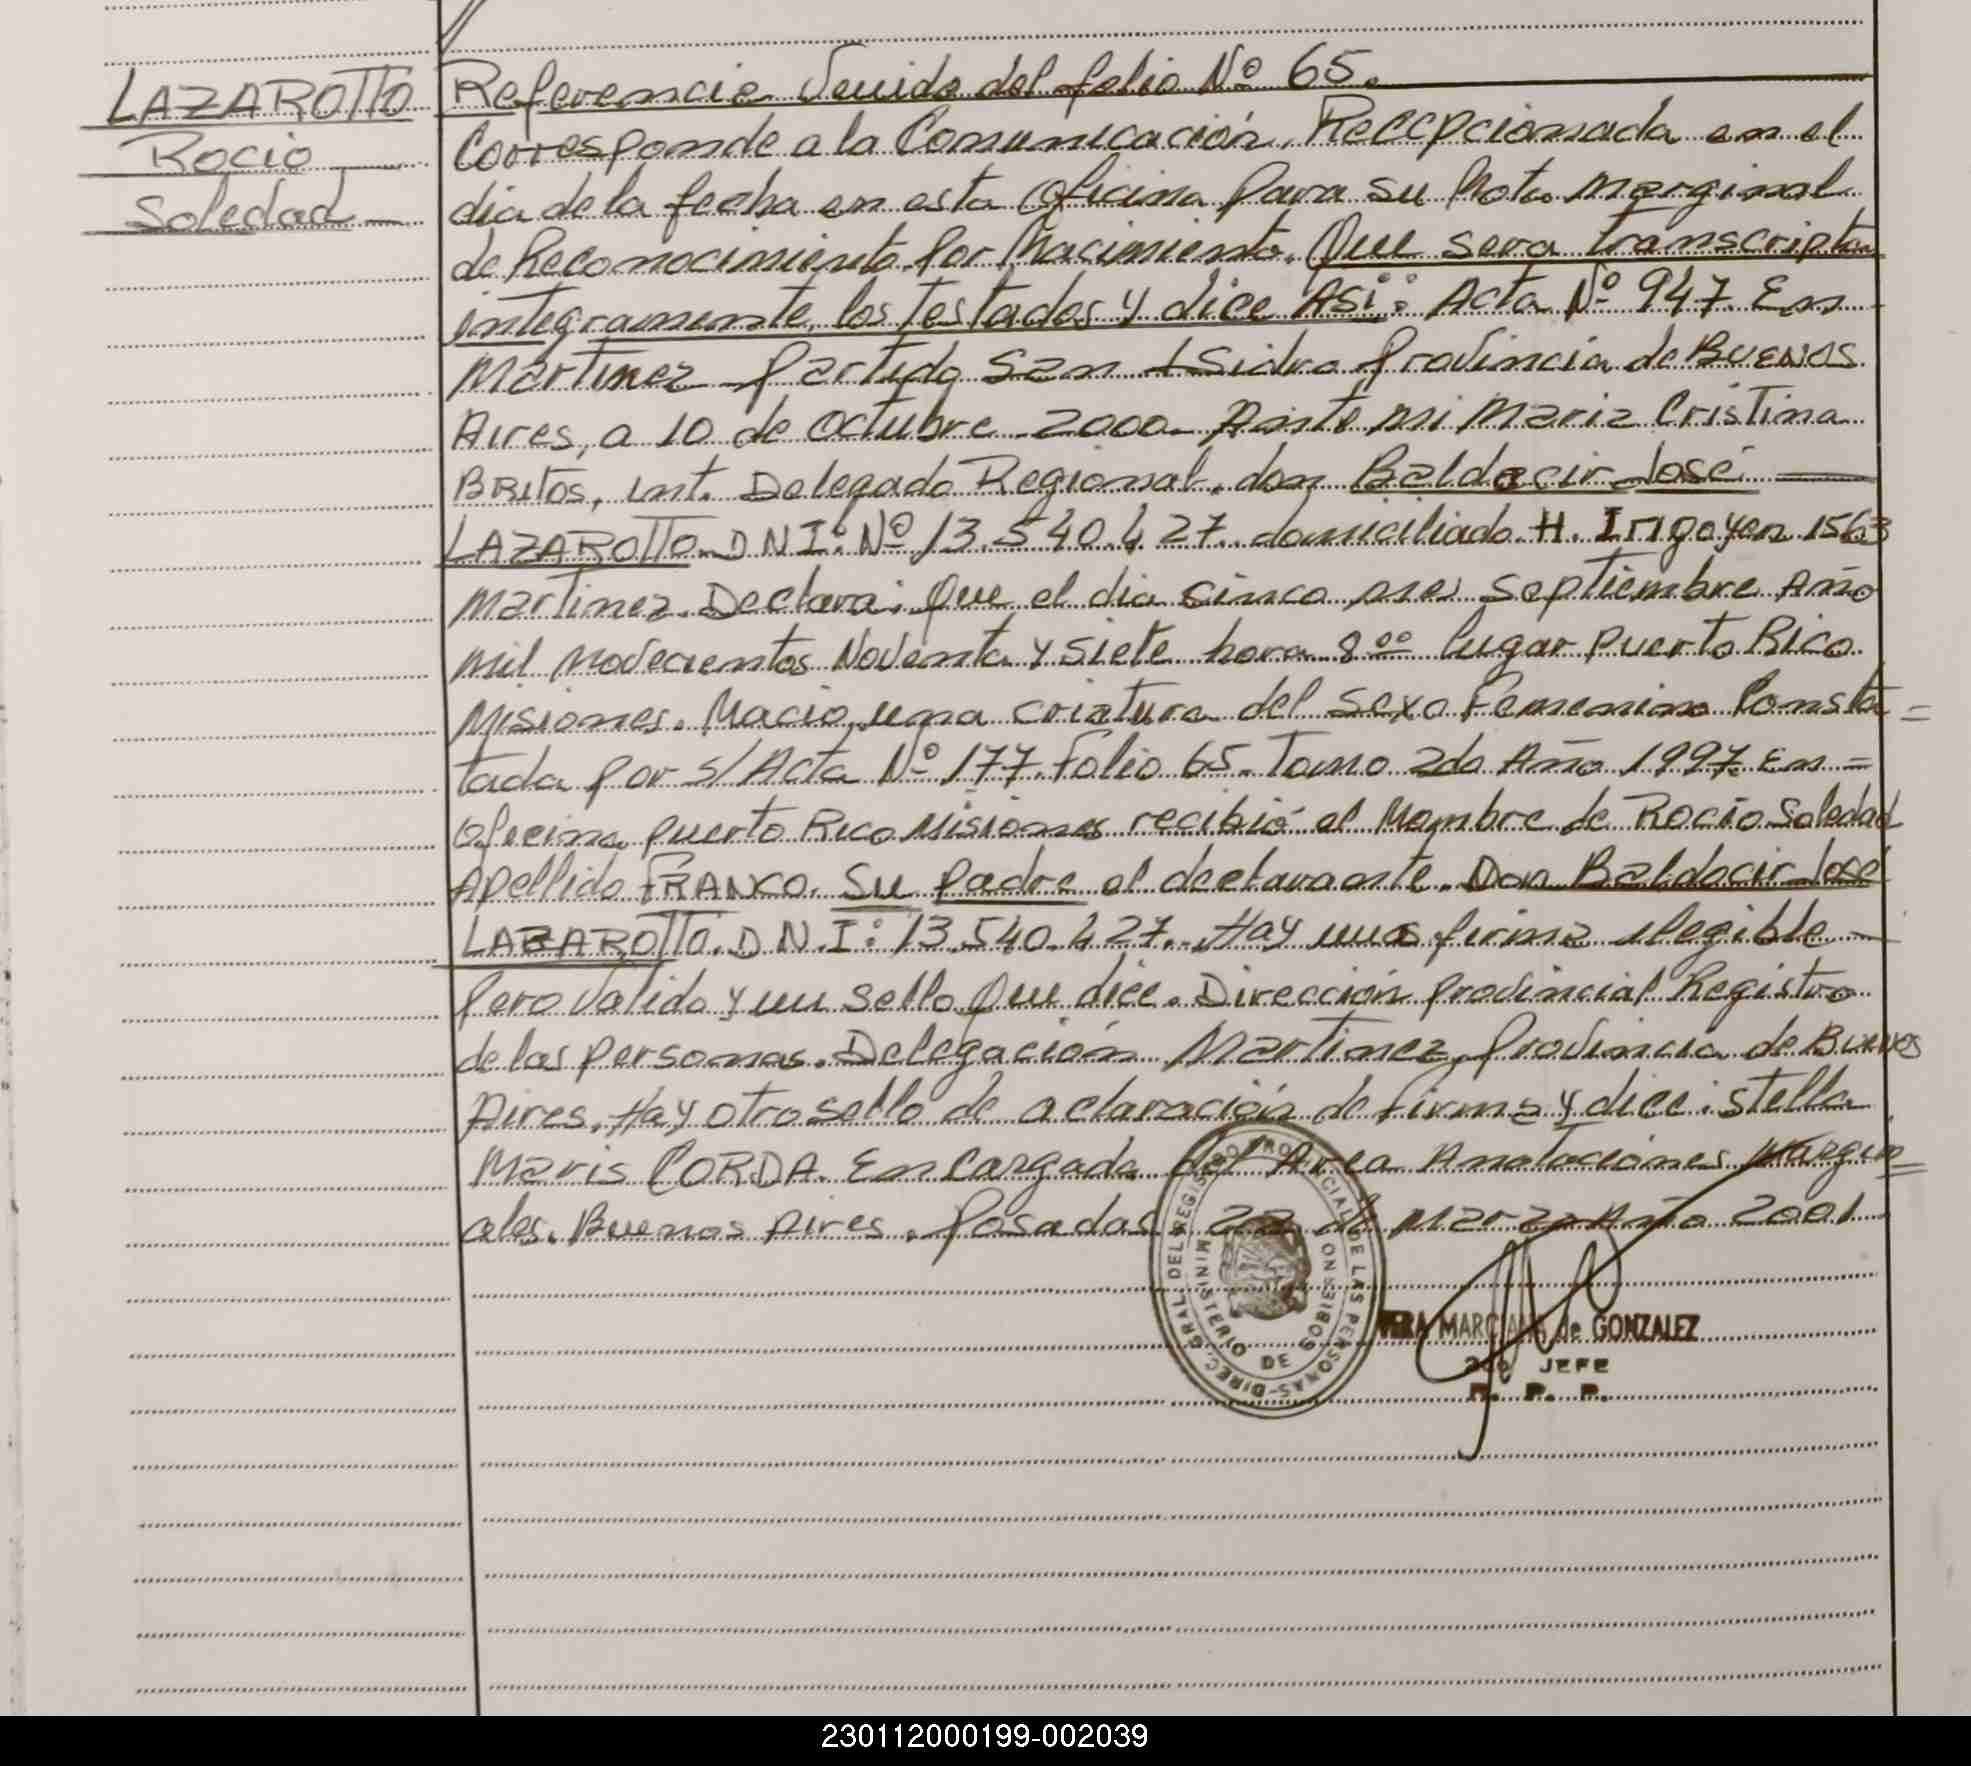 LAZAROTTO
Rocio
Soledad
Referencia Venida del folio Nº 65.
Corresponde a la Comunicación, Recepcionada en el
dia de la fecha en esta Oficina para su Nota Marginal
de Reconocimiento por Nacimiento. Que sera transcripta
integramente, los Testados y dice Asi: Acta Nº 947. En
Martinez Partido San Isidro Provincia de Buenos
Aires, a 10 de octubre 2000. Ante mi Maria Cristina
Britos, int. Delegado Regional, don Baldocir José
LAZAROTTO. DNI: Nº 13.540.427. domiciliado H. Irigoyen 1563
Martinez. Declara: Que el dia cinco mes Septiembre Año
mil Novecientos Noventa y siete hora 8 oo lugar Puerto Rico
Misiones. Nacio una criatura del sexo Femenino Consta=
tada por s/ Acta Nº 177. Folio 65. Tomo 2do Año 1997. En =
Oficina puerto Rico Misiones recibió el Nombre de Rocio Soledad
Apellido FRANCO. Su padre el declarante. Don Baldocir José
LAZAROTTO. D N.I: 13.540.427. Hay una firma ilegible
pero valida y un sello Que dice. Dirección Provincial Registro
de las Personas. Delegación Martinez, Provincia de Buenos
Aires. Hay otro sello de aclaración de firma y dice: Stella
Maris CORDA. Encargada del Area Anotaciones Margin=
ales. Buenos Aires. Posadas 22 de Marzo Año 2001.
DIREC. GRAL DEL REGISTRO PROVINCIAL DE LAS PERSONAS
MINISTERIO DE GOBIERNO MISIONES
MARCIANA de GONZALEZ
2do JEFE
R. P. P.
230112000199-002039